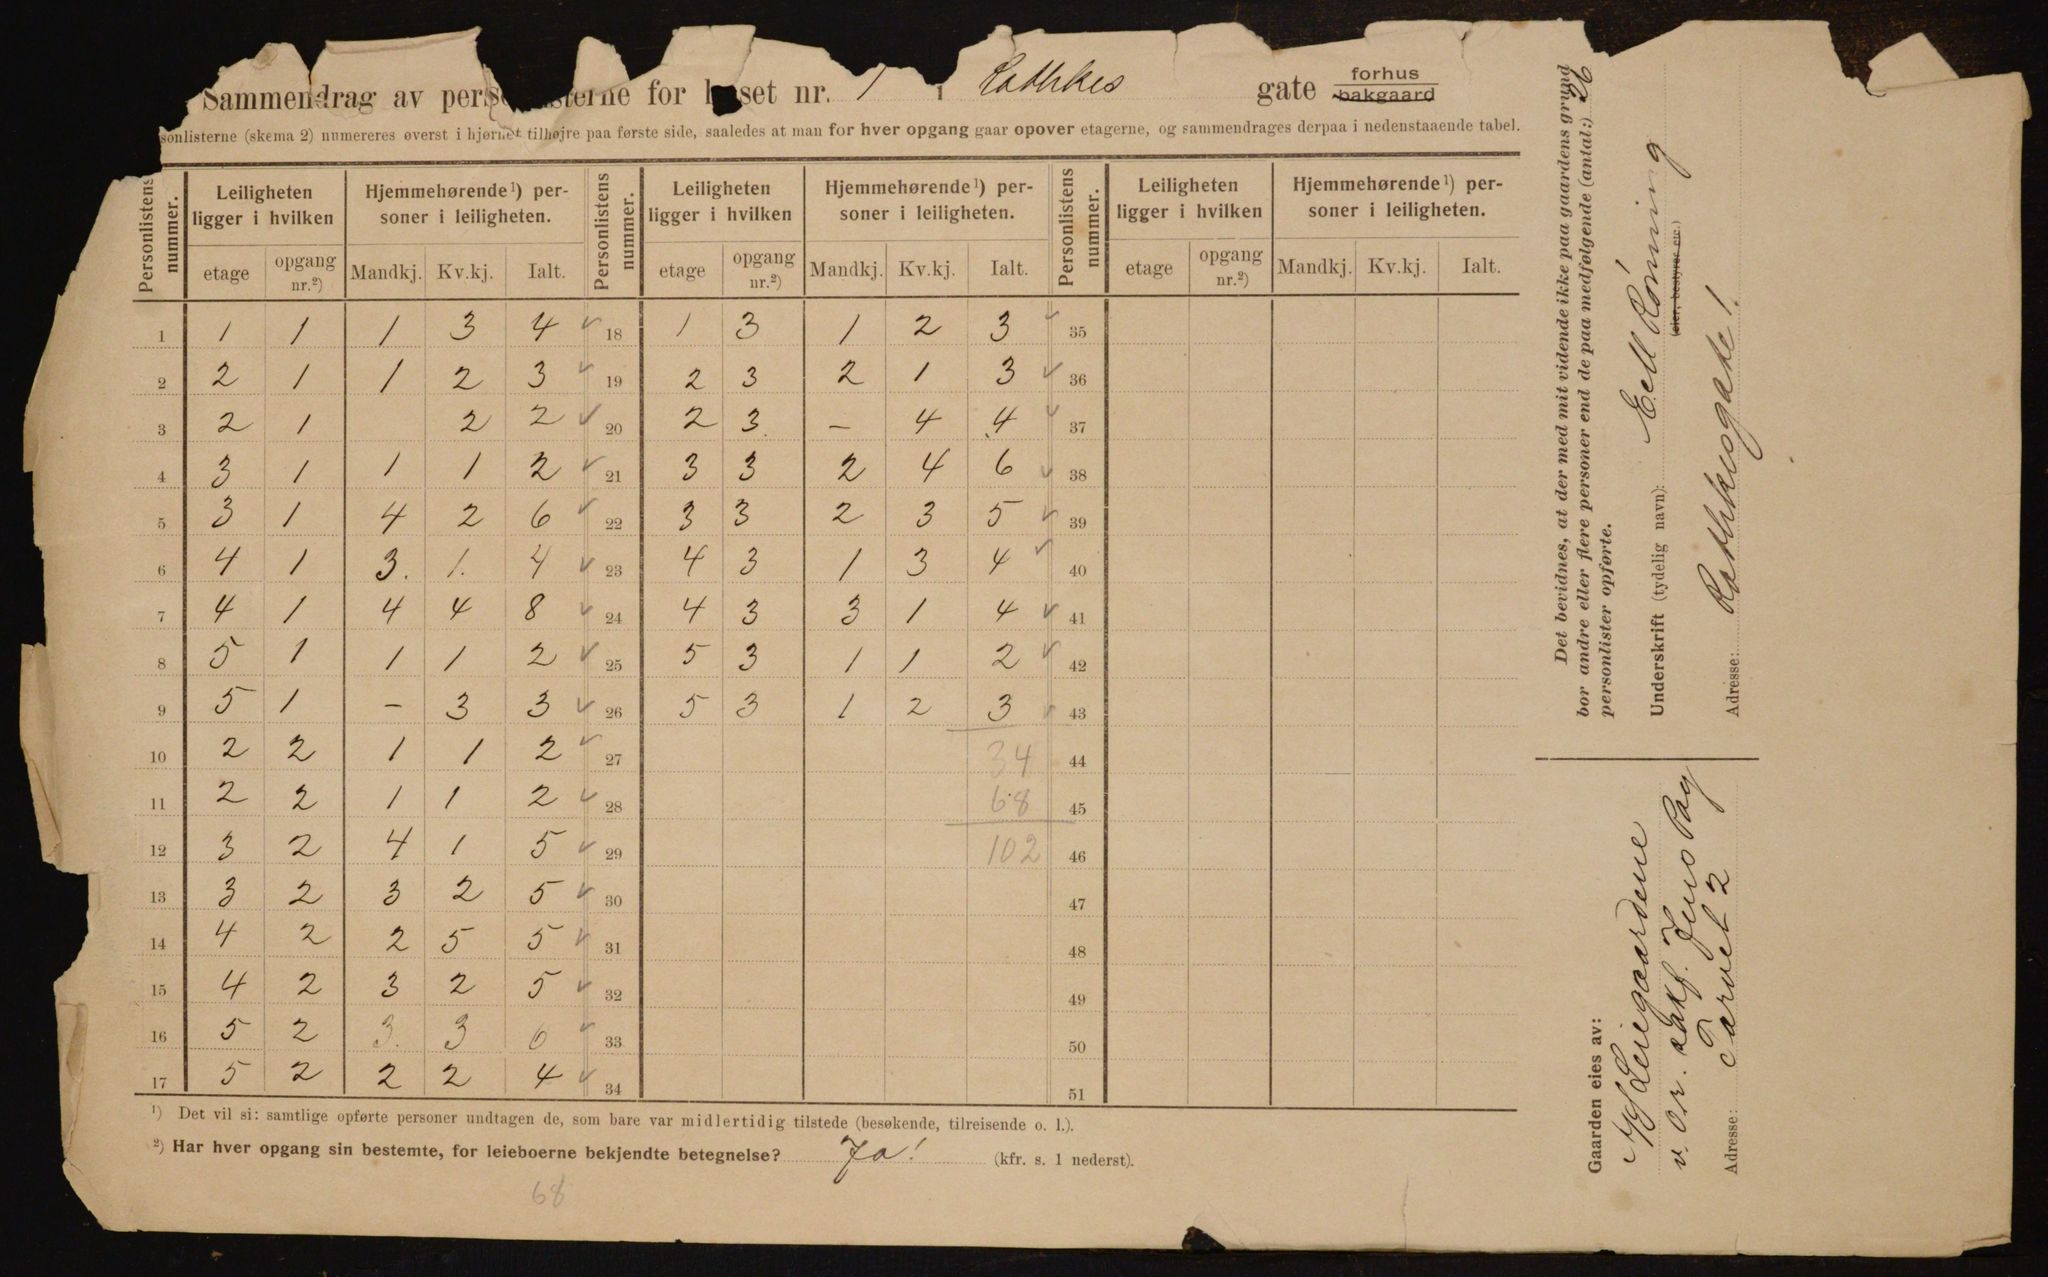 Sammendrag av per terne for set nr. 1 i Rathkes gate forhus bakgaard
sonlisterne (skema 2) numereres øverst i hjørnet tilhøjre paa første side, saaledes at man for hver opgang gaar opover etagerne, og sammendrages derpaa i nedenstaaende tabel.
Personlistens nummer. Leiligheten ligger i hvilken Hjemmehørende¹) personer i leiligheten. Personlistens nummer. Leiligheten ligger i hvilken Hjemmehørende¹) personer i leiligheten. Personlistens nummer. Leiligheten ligger i hvilken Hjemmehørende¹) personer i leiligheten.
etage opgang nr.²) Mandkj. Kv.kj. Ialt. etage opgang nr.²) Mandkj. Kv.kj. Ialt. etage opgang nr.²) Mandkj. Kv.kj. Ialt.
1 1 1 1 3 4 ✓ 18 1 3 1 2 3 ✓ 35
2 2 1 1 2 3 ✓ 19 2 3 2 1 3 ✓ 36
3 2 1 2 2 ✓ 20 2 3 – 4 4 ✓ 37
4 3 1 1 1 2 ✓ 21 3 3 2 4 6 ✓ 38
5 3 1 4 2 6 ✓ 22 3 3 2 3 5 ✓ 39
6 4 1 3. 1. 4 ✓ 23 4 3 1 3 4 ✓ 40
7 4 1 4 4 8 ✓ 24 4 3 3 1 4 ✓ 41
8 5 1 1 1 2 ✓ 25 5 3 1 1 2 ✓ 42
9 5 1 – 3 3 ✓ 26 5 3 1 2 3 ✓ 43
10 2 2 1 1 2 ✓ 27 34 44
11 2 2 1 1 2 ✓ 28 68 45
12 3 2 4 1 5 ✓ 29 102 46
13 3 2 3 2 5 ✓ 30 47
14 4 2 2 5 5 ✓ 31 48
15 4 2 3 2 5 ✓ 32 49
16 5 2 3. 3 6 ✓ 33 50
17 5 2 2 2 4 ✓ 34 51
¹) Det vil si: samtlige opførte personer undtagen de, som bare var midlertidig tilstede (besøkende, tilreisende o. l.).
²) Har hver opgang sin bestemte, for leieboerne bekjendte betegnelse? Ja! (kfr. s. 1 nederst).
68
Det bevidnes, at der med mit vidende ikke paa gaardens grund
bor andre eller flere personer end de paa medfølgende (antal:) 26
personlister opførte.
Underskrift (tydelig navn): Rönning
(eier, bestyrer etc.)
Adresse: Rathkesgate 1.
Gaarden eies av:
Leiegaardene
v. o.r. sakf. Jens
Adresse: Torvet 2